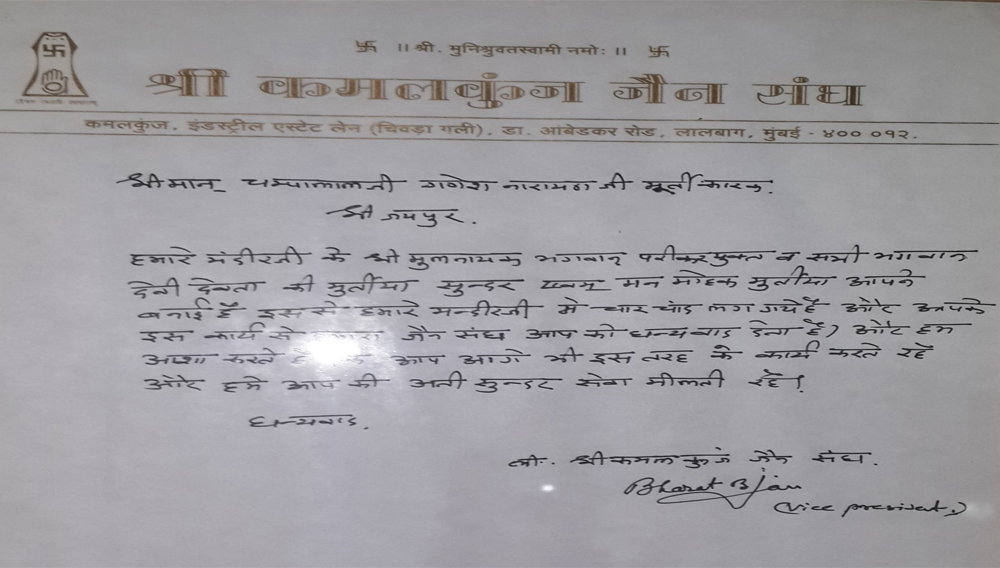 卐 ।। श्री. मुनिश्रुवतस्वामी नमोः ।। 卐
श्री कमलकुंज जैन संघ
कमलकुंज, इंडस्ट्रील एस्टेट लेन (चिवड़ा गली), डा. आंबेडकर रोड, लालबाग, मुंबई - ४०० ०१२.
श्रीमान् चम्पालालजी गणेश नारायणजी मूर्तीकारक.
श्री जयपुर.
हमारे मंदीरजी के श्री मुलनायक भगवान् परीकरयुक्त व सभी भगवान
देवी देवता की मुर्तीया सुन्दर एवम् मन मोहक मुर्तीया आपने
बनाई हैं इस से हमारे मन्दीरजी मे चार चांद लग गये हैं और आपके
इस कार्य से जैन संघ आप को धन्यवाद देता है) और हम
आशा करते आप आगे भी इस तरह के कार्य करते रहें
और हमे आप की अती सुन्दर सेवा मीलती रहें!
धन्यवाद.
ली.. श्री कमल कुंज जैन संघ.
Bharat B Jain
(Vice president.)